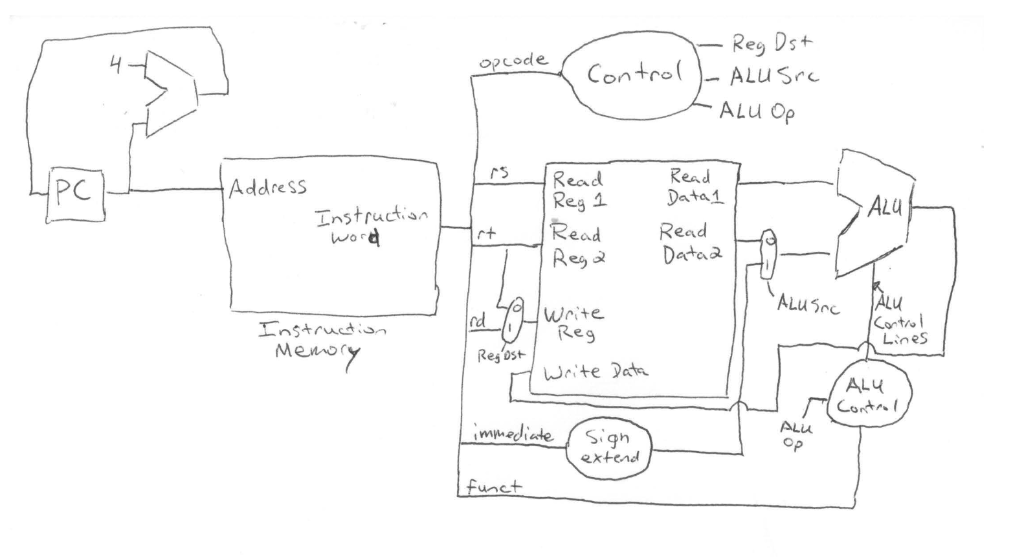 4
PC
Address
Instruction
word
Instruction
Memory
opcode
Control
Reg Dst
ALU Src
ALU Op
rs
rt
rd
0
1
RegDst
Read
Reg 1
Read
Reg 2
Write
Reg
Write Data
Read
Data 1
Read
Data 2
0
1
ALU Src
ALU
ALU
Control
Lines
ALU
Control
ALU
Op
immediate
Sign
extend
funct